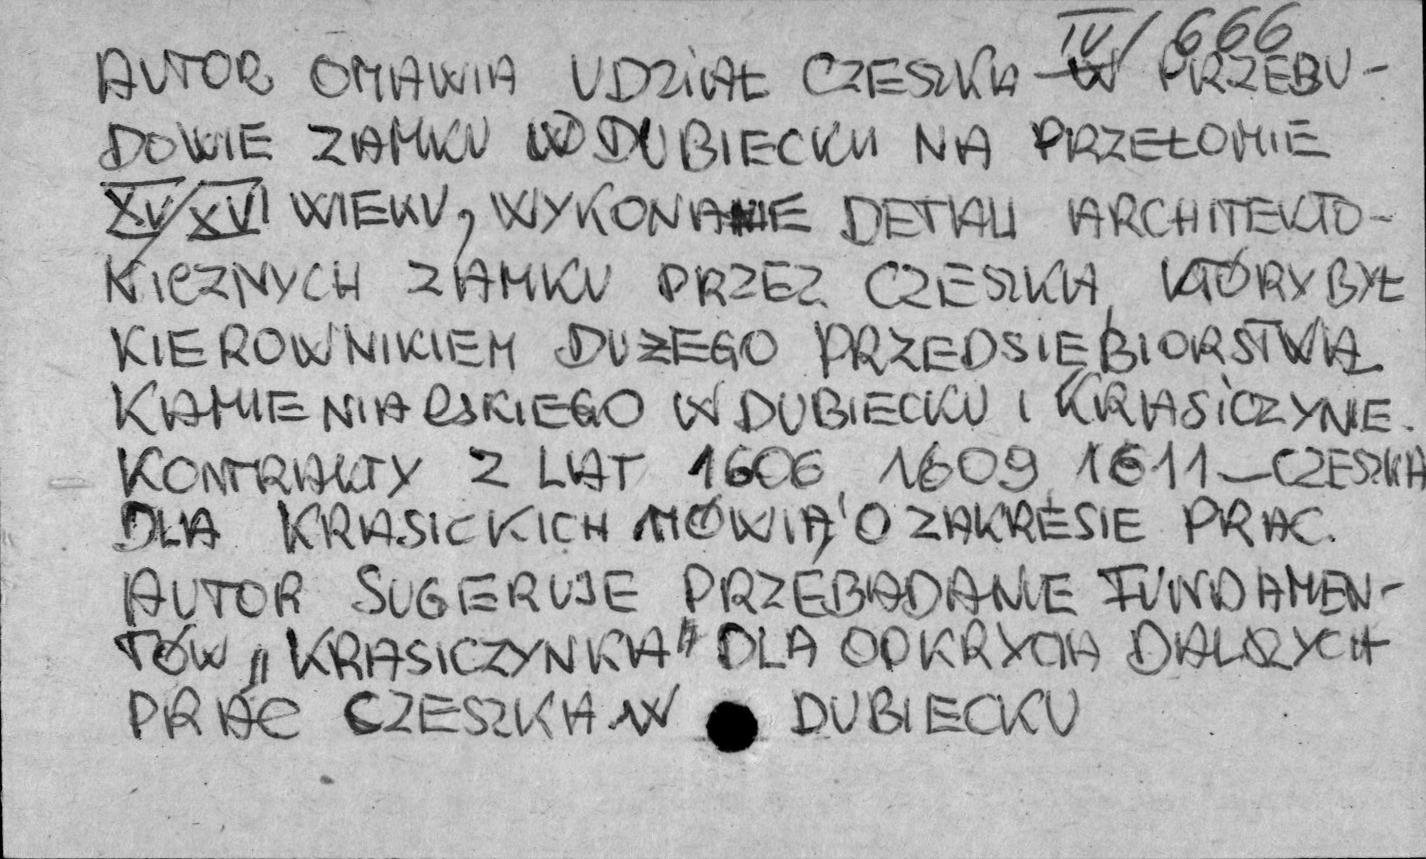 IV/666
AUTOR OMAWIA UDZIAŁ CZESZKA W PRZEBU-
DOWIE ZAMKU W DUBIECKU NA PRZEŁOMIE
XV/XVI WIEKU, WYKONANIE DETALI ARCHITEKTO-
NICZNYCH ZAMKU PRZEZ CZESZKA, KTÓRY BYŁ
KIEROWNIKIEM DUŻEGO PRZEDSIĘBIORSTWA
KAMIENIARSKIEGO W DUBIECKU I KRASICZYNIE.
KONTRAKTY Z LAT 1606, 1609, 1611 – CZESZKA
DLA KRASICKICH MÓWIĄ O ZAKRESIE PRAC.
AUTOR SUGERUJE PRZEBADANIE FUNDAMEN-
TÓW „KRASICZYNKA" DLA ODKRYCIA DALSZYCH
PRAC CZESZKA W DUBIECKU